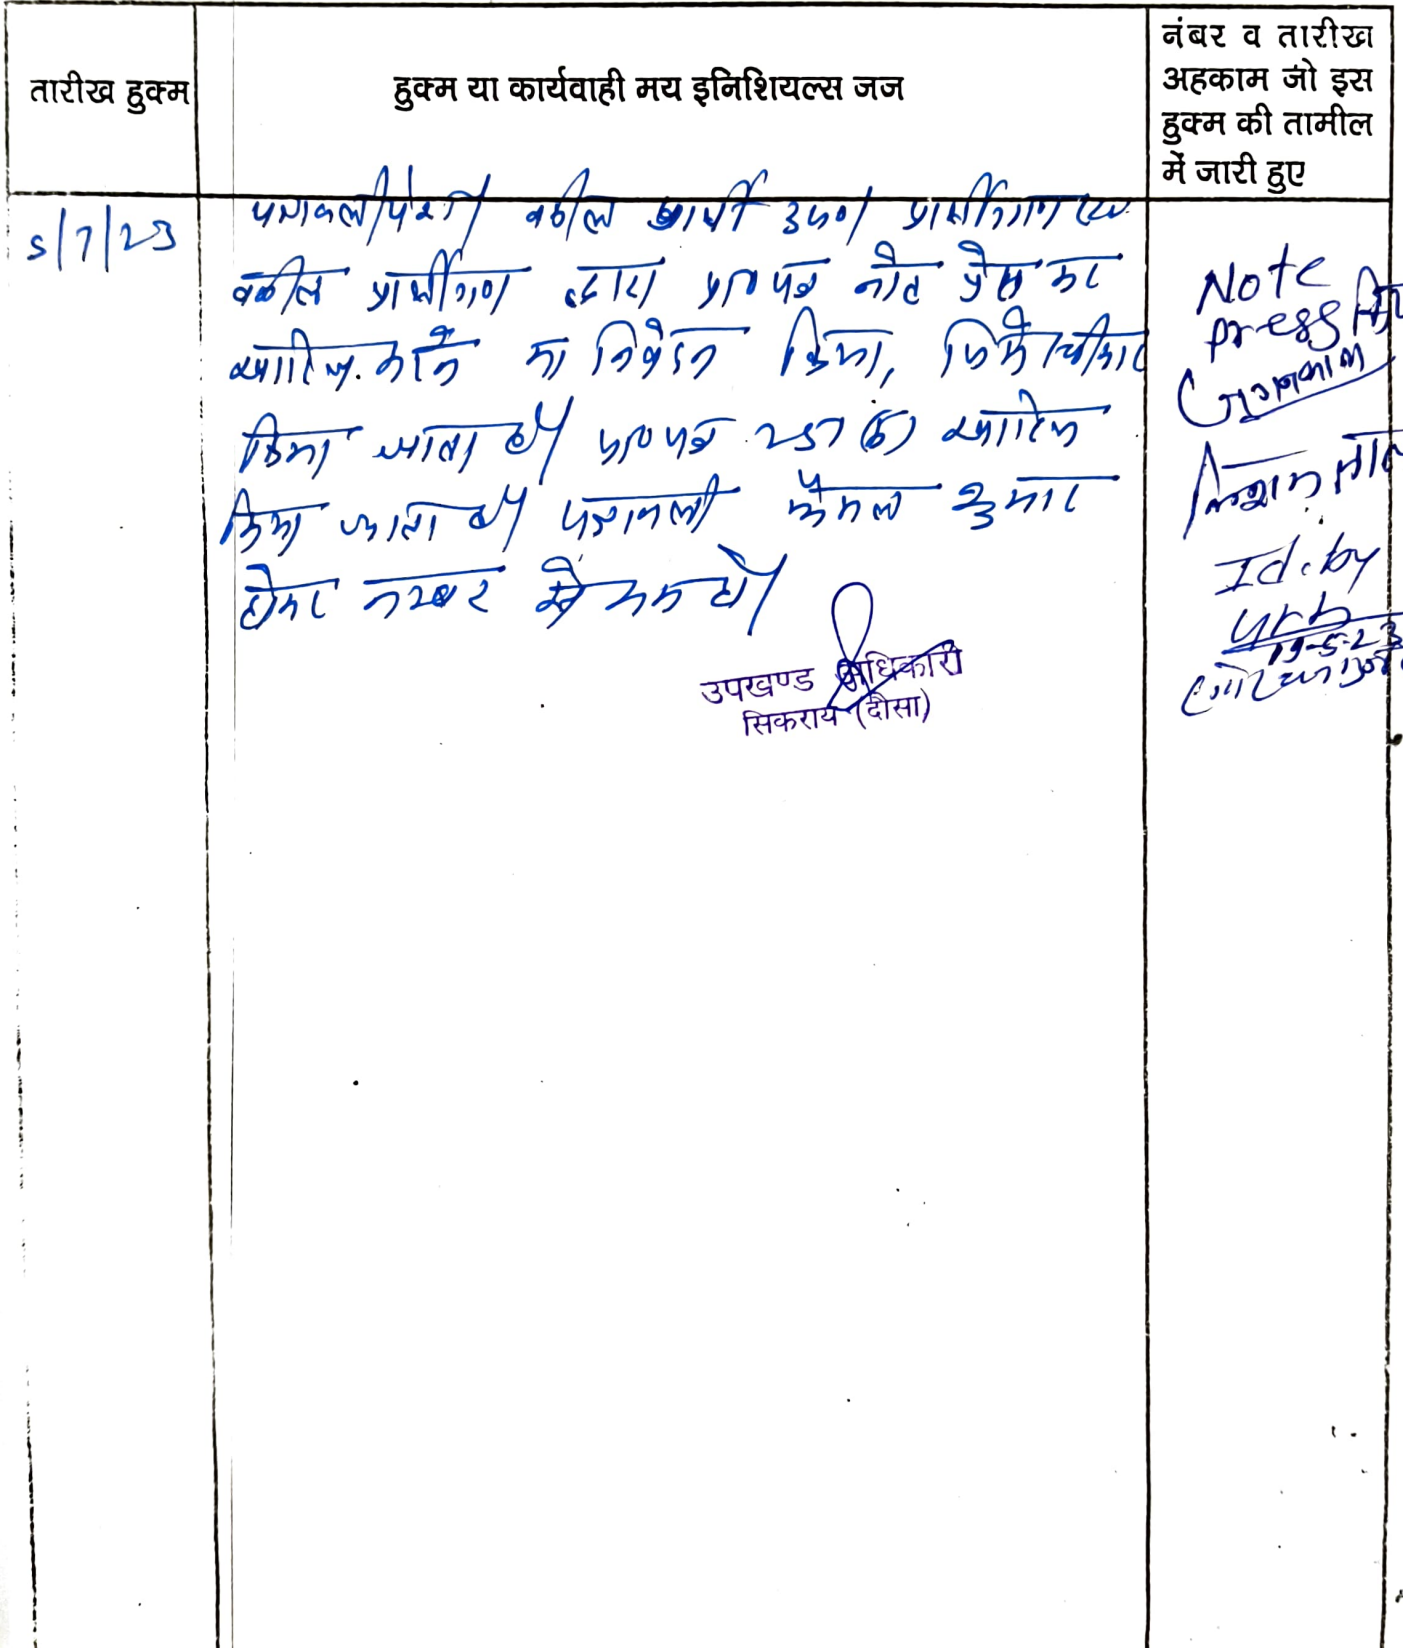 तारीख हुक्म
हुक्म या कार्यवाही मय इनिशियल्स जज
नंबर व तारीख
अहकाम जो इस
हुक्म की तामील
में जारी हुए
5/7/23
पत्रावली पेश। वकील प्रार्थी उप०। प्रार्थीगण
वकील प्रार्थीगण द्वारा प्रा० पत्र नोट प्रेस कर
खारिज करने का निवेदन किया, जिसे स्वीकार
किया जाता है। प्रा० पत्र 251 (क) खारिज
किया जाता है। पत्रावली फैसल शुमार
होकर नम्बर से कम हो।
उपखण्ड अधिकारी
सिकराय (दौसा)
Note
press
Id. by
19-5-23